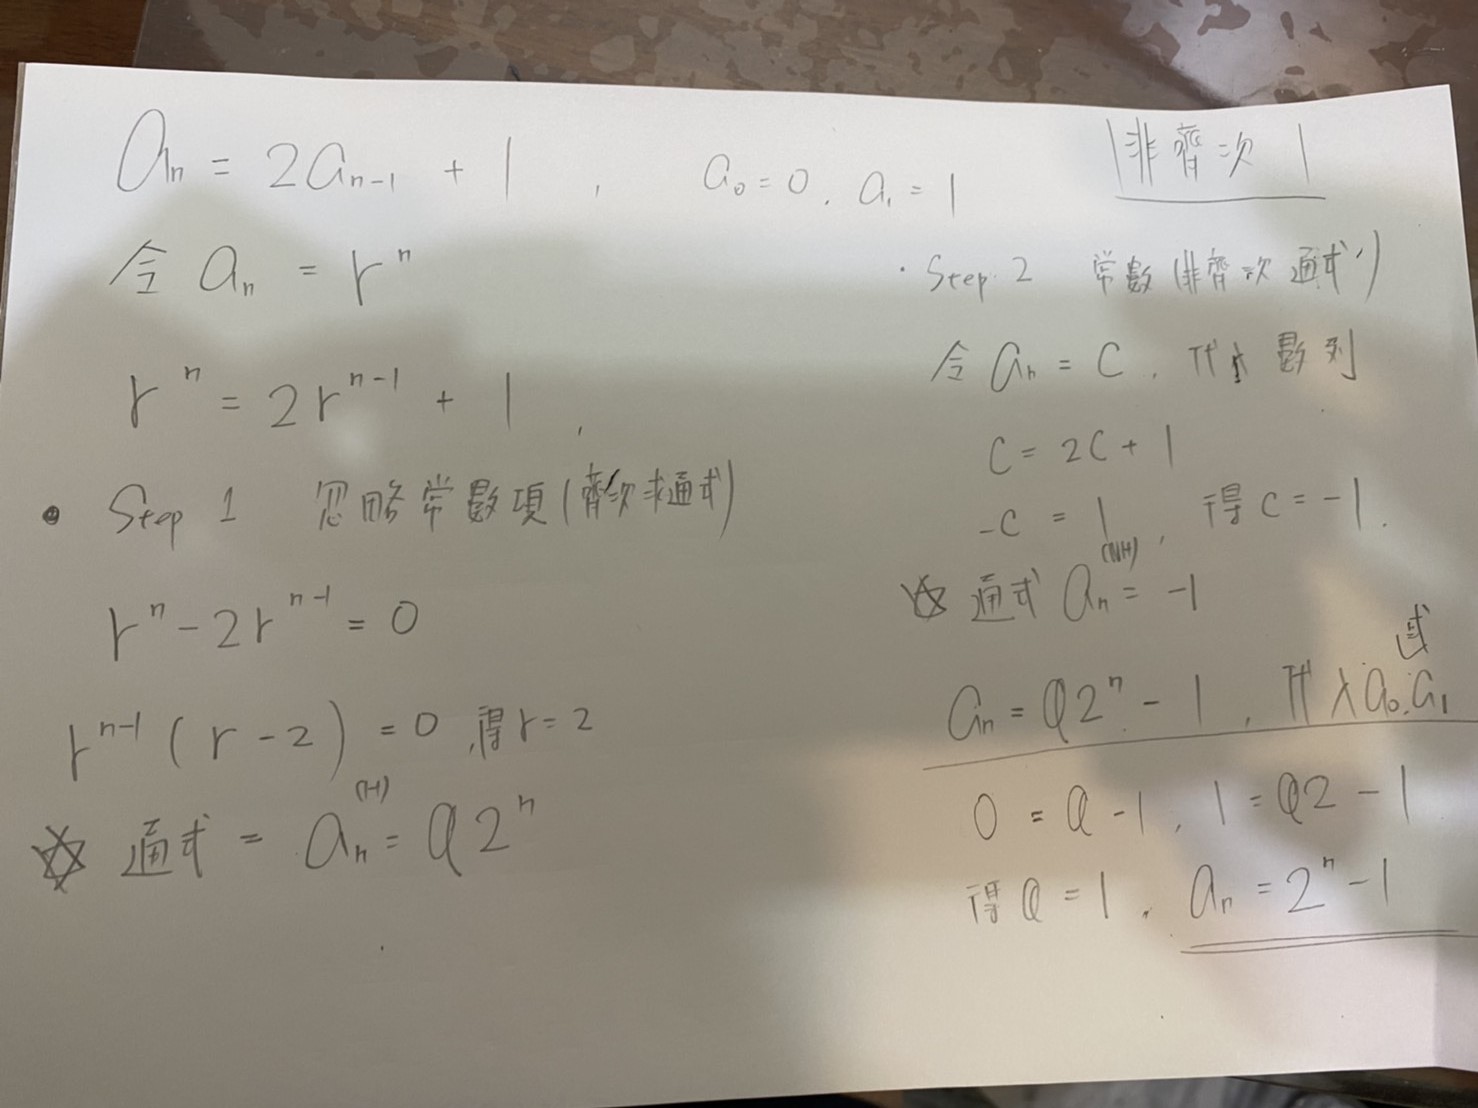 aₙ = 2aₙ₋₁ + 1 , a₀ = 0, a₁ = 1
令 aₙ = rⁿ
rⁿ = 2rⁿ⁻¹ + 1 ,
• Step 1 忽略常數項(齊次求通式)
rⁿ - 2rⁿ⁻¹ = 0
rⁿ⁻¹ ( r - 2 ) = 0 , 得 r = 2
☆ 通式 = aₙ⁽ᴴ⁾ = Q2ⁿ
|非齊次|
· Step 2 常數(非齊次通式)
令 aₙ = C , 代入數列
C = 2C + 1
-C = 1 , 得 C = -1 .
☆ 通式 aₙ⁽ᴺᴴ⁾ = -1
aₙ = Q2ⁿ - 1 , 代入 a₀, a₁
0 = Q - 1 , 1 = Q2 - 1
得 Q = 1 , aₙ = 2ⁿ - 1